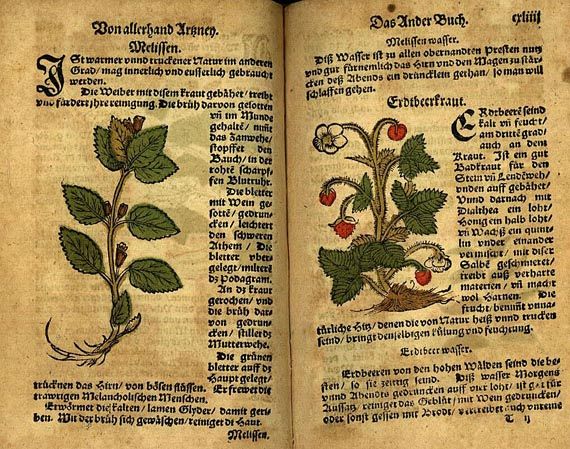 Von allerhand Artzney.
Melissen.
IST warmer vnnd truckener Natur im anderen
Grad/ mag innerlich vnd eusserlich gebraucht
werden.
Die Weiber mit disem kraut gebähet/ treibt
vnd fürdert jhre reinigung. Die brüh daruon gesotten
vñ im Munde
gehaltẽ/ nim̃t
das Zanwehe/
stopffet den
Bauch/ in der
rohtẽ scharpf-
fen Blutruhr.
Die bletter
mit Wein ge-
sottẽ/ gedrun-
cken/ leichtert
den schweren
Athem/ Die
bletter vber
gelegt/ miltert
dz Podagram.
An dz kraut
gerochen/ vnd
die brüh dar-
von gedrun-
cken/ stillet dz
Mutterwehe.
Die grünen
bletter auff dz
Haupt gelegt/
trücknen das Hirn/ von bösen flüssen. Er frewet die
trawrigen Melancholischen Menschen.
Erwörmet die kalten/ lamen Glyder/ damit geri-
ben. Mit der brüh sich gewäschen/ reiniget di Haut.
Melissen.
Das Ander Buch. cxliiij
Melissen wasser.
Diß Wasser ist zu allen obernandten Presten nutz
vnd gut fürnemlich das Hirn vnd den Magen zu stär-
cken deß Abends ein drüncklein gethan/ so man will
schlaffen gehen.
Erdtbeerkraut.
ERdtbeerẽ seind
kalt vñ feucht/
am drittẽ grad/
auch an dem
Kraut. Ist ein gut
Badkraut für den
Stein vñ Lendẽweh/
vnden auff gebähet/
Vnnd darnach mit
Dialthea ein loht/
Honig ein halb loht/
vñ Wachß ein quint-
lin vnder einander
vermischt/ mit diser
Salbẽ geschmiert/
treibt auß verharte
materien/ vñ macht
wol Harnen. Die
frucht/ benim̃t vnna-
türliche Hitz/ denen die von Natur heiß vnnd trucken
seind/ bringt denselbigen külung vnd feuchtung.
Erdtbeer wasser.
Erdtbeeren von den hohen Wälden seind die be-
sten/ so sie zeitig seind. Diß wasser Morgens
vnnd Abends gedruncken auff vier loht/ ist gut für
Aussatz/ reiniget das Geblüt/ mit Wein gedruncken/
oder sonst gessen mit Brodt/ vertreibet auch vnreine
T ij